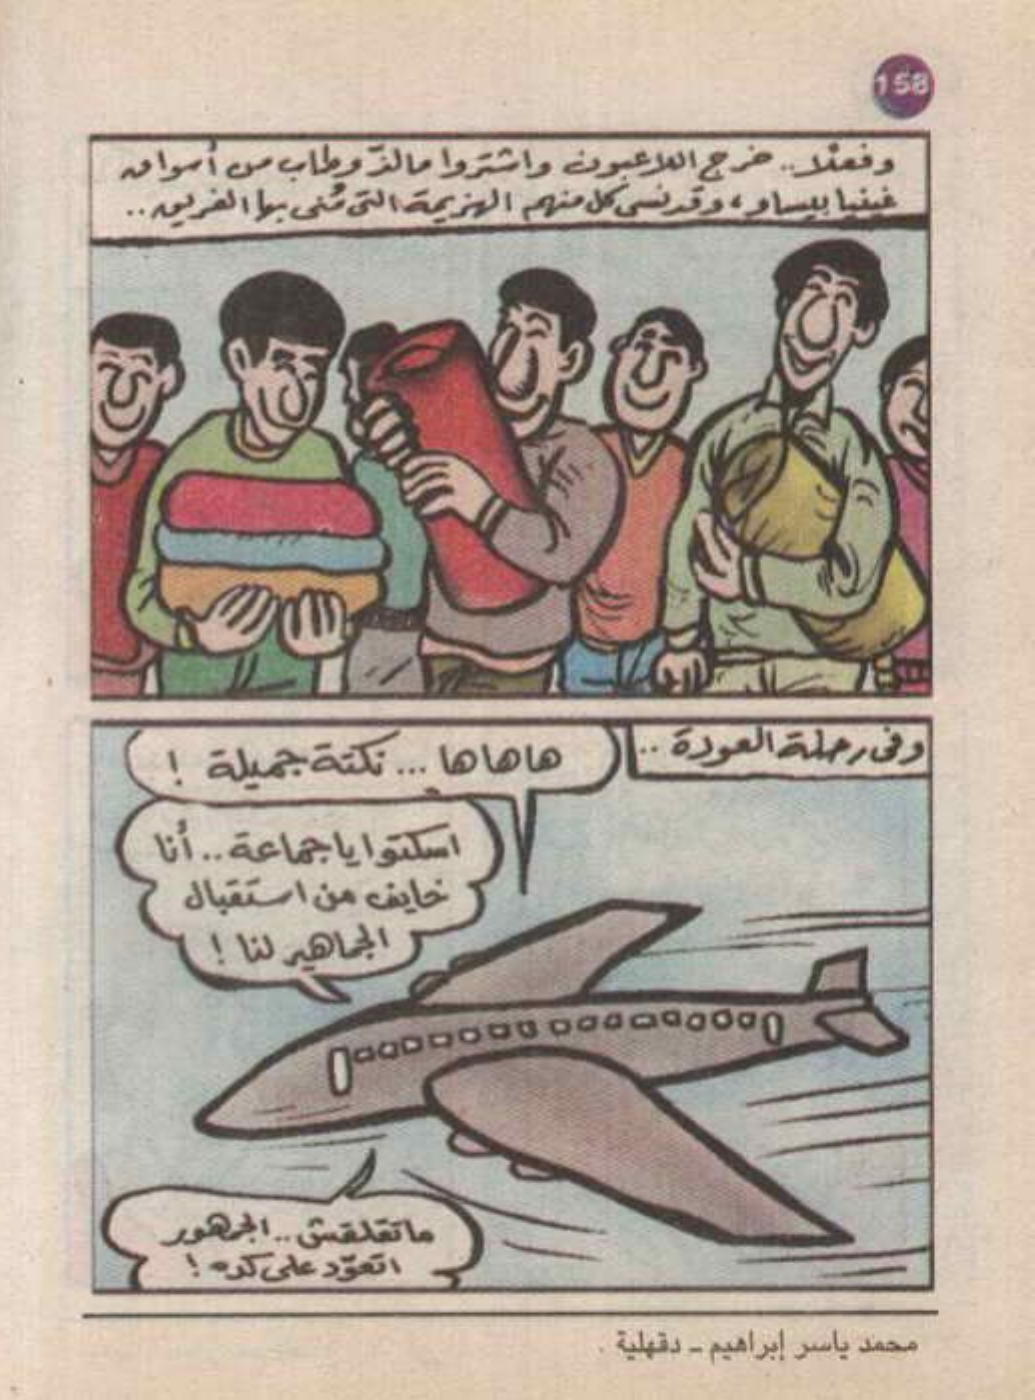 158
وفعلًا.. خرج اللاعبون واشتروا مالذّ وطاب من أسواق
غينيا بيساو، وقد نسى كل منهم الهزيمة التى مُنى بها الفريق..
وفى رحلة العودة ..
هاهاها ... نكتة جميلة !
اسكتوا ياجماعة.. أنا
خايف من استقبال
الجماهير لنا !
ماتقلقش.. الجمهور
اتعوّد على كده !
محمد ياسر إبراهيم ـ دقهلية .